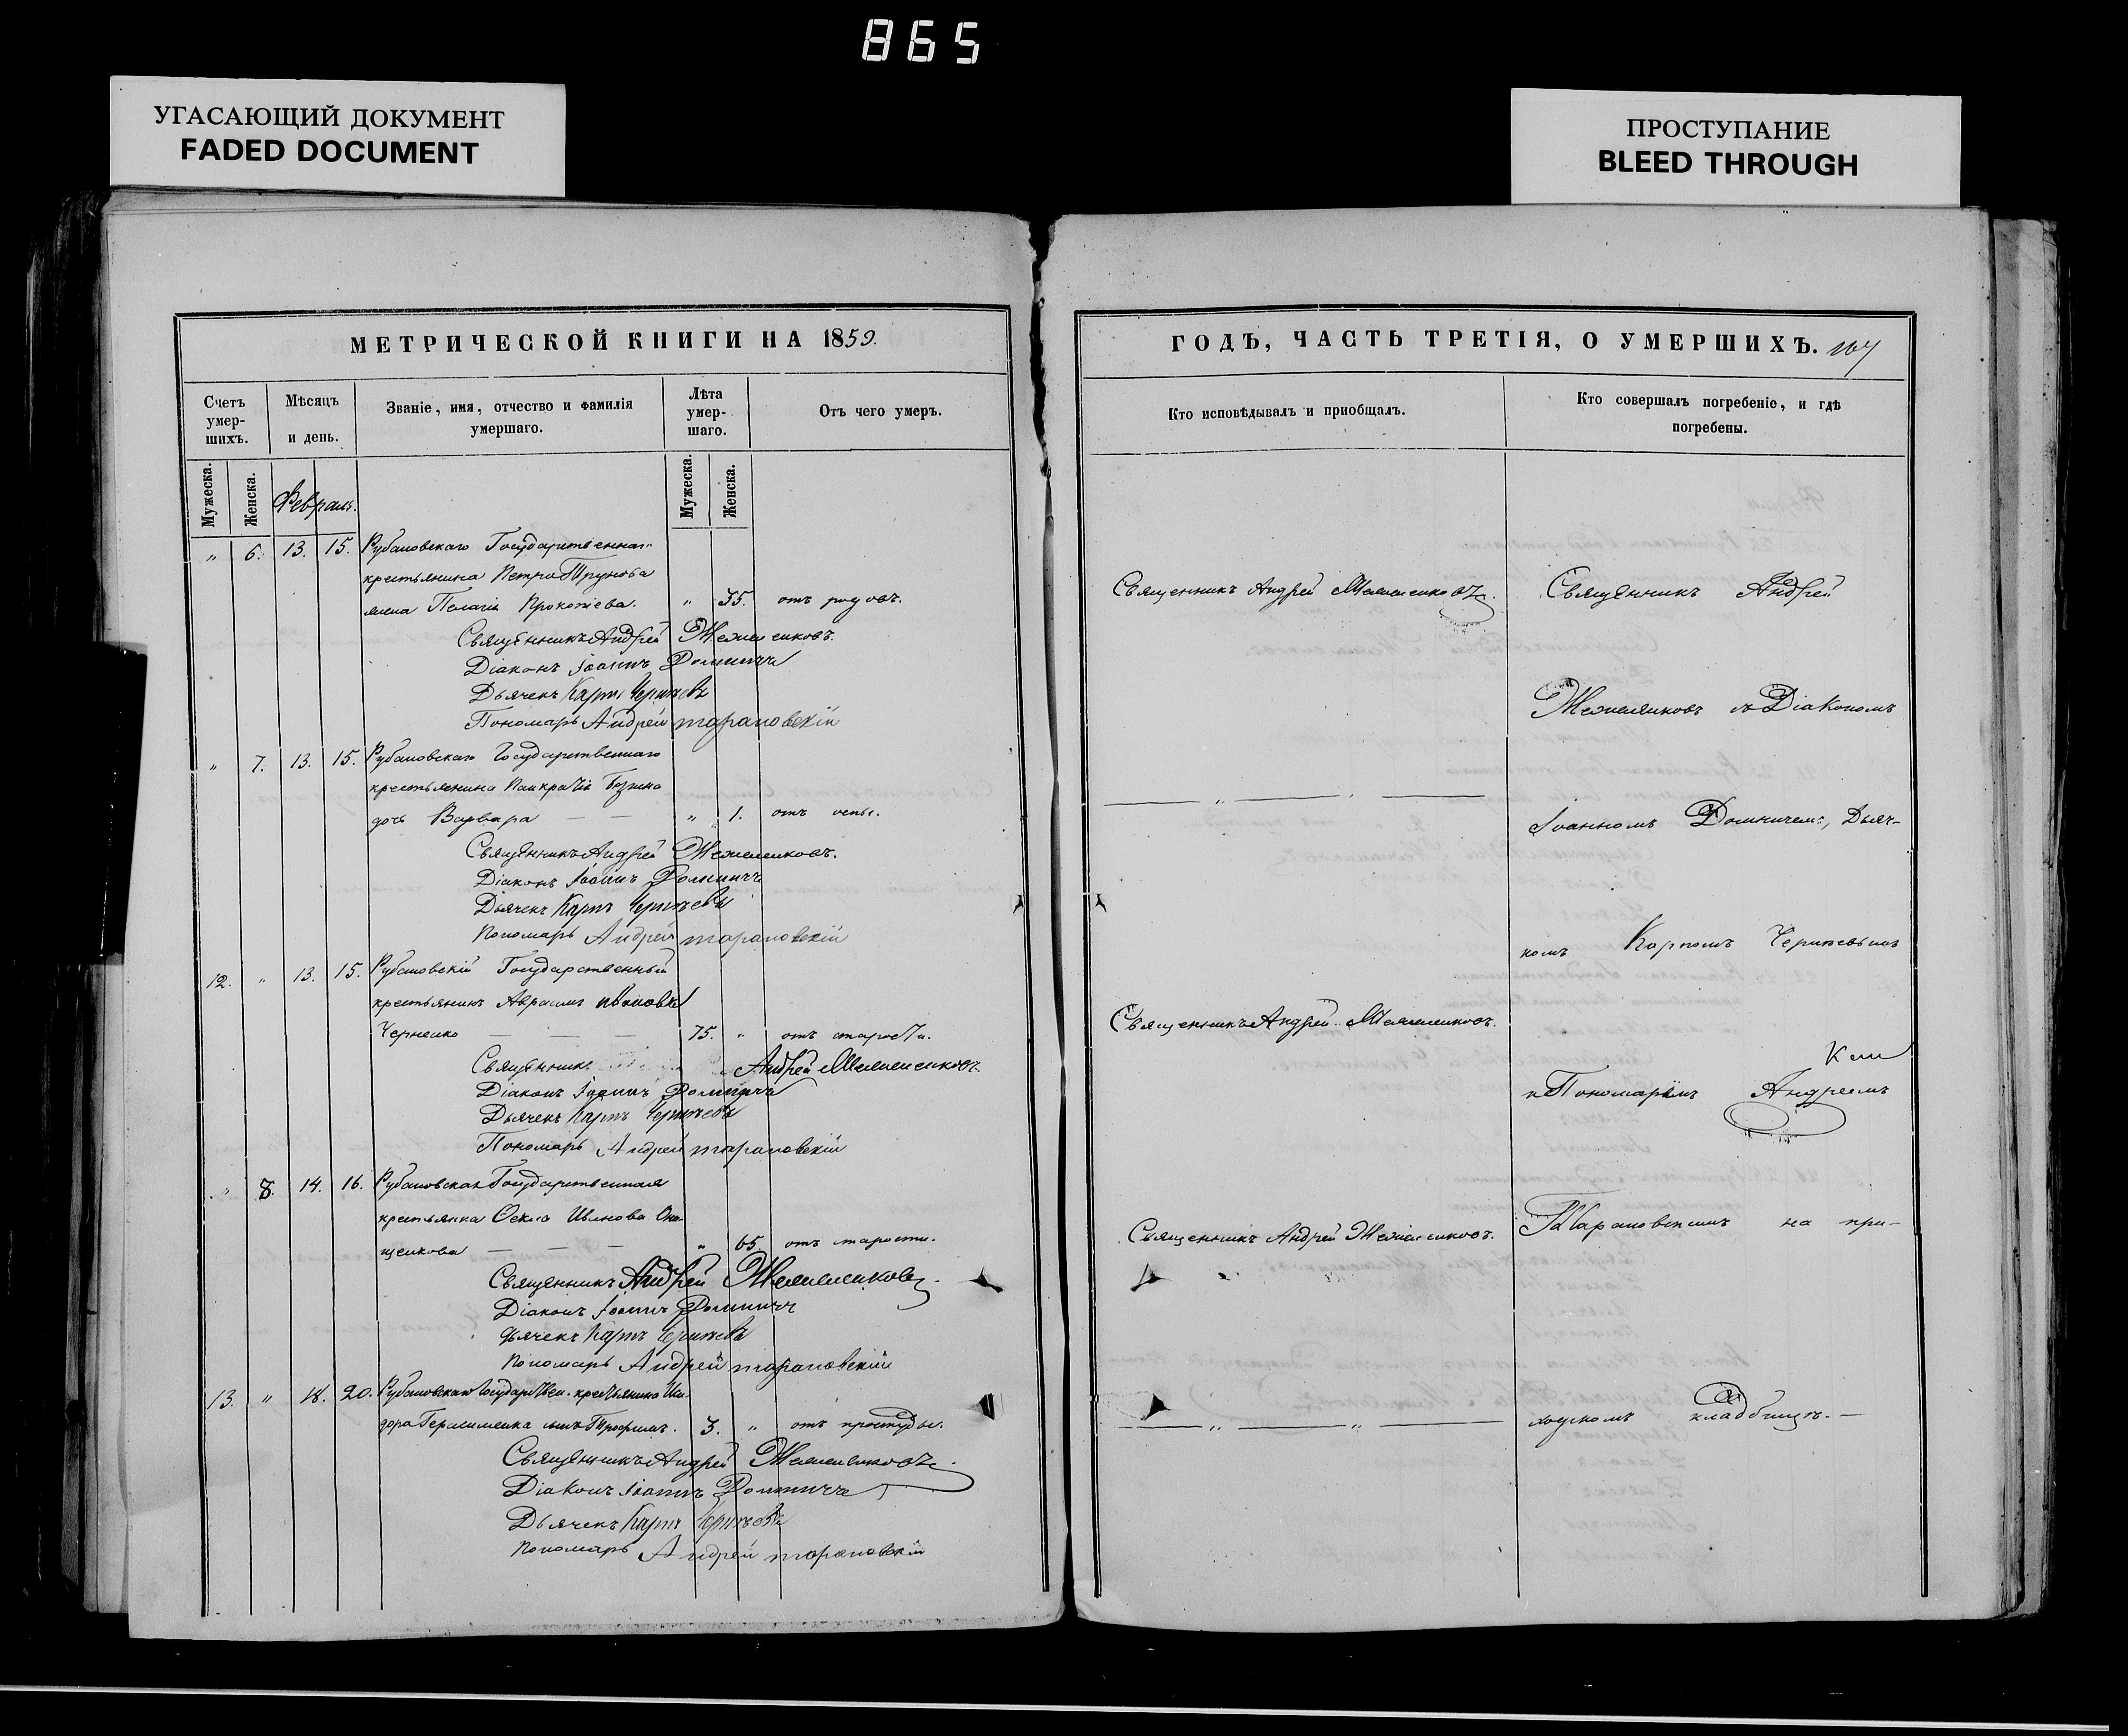 865
УГАСАЮЩИЙ ДОКУМЕНТ
FADED DOCUMENT
ПРОСТУПАНИЕ
BLEED THROUGH
МЕТРИЧЕСКОЙ КНИГИ НА 1859.
Счетъ умер-шихъ.
Мѣсяцъ и день.
Званіе, имя, отчество и фамилія умершаго.
Лѣта умер-шаго.
Отъ чего умеръ.
Мужеска.
Женска.
Февраль.
Мужеска.
Женска.
" 6. 13. 15. Рубановскаго Государственнаго
крестьянина Петра Трунова
жена Пелагія Прокофіева. " 35. отъ родовъ.
Священникъ Андрей
Діаконъ Іоаннъ Домничъ
Дьячекъ Карпъ
Пономарь Андрей Тарановскій
" 7. 13. 15. Рубановскаго Государственнаго
крестьянина Панкратія
дочь Варвара — — " 1. отъ оспы.
Священникъ Андрей
Діаконъ Іоаннъ Домничъ
Дьячекъ Карпъ
Пономарь Андрей Тарановскій
12. " 13. 15. Рубановскій Государственный
крестьянинъ Авраамъ
Черненко — — — 75. " отъ старости.
Священникъ Андрей
Діаконъ Іоаннъ Домничъ
Дьячекъ Карпъ
Пономарь Андрей Тарановскій
" 8. 14. 16. Рубановская Государственная
крестьянка Ѳекла Иванова Она-
щенкова — — — " 65 отъ старости.
Священникъ Андрей
Діаконъ Іоаннъ Домничъ
Дьячекъ Карпъ
Пономарь Андрей Тарановскій
13. " 18. 20. Рубановскаго Государствен. крестьянина Иси-
дора Герасименка сынъ Трофимъ. 3. " отъ простуды.
Священникъ Андрей
Діаконъ Іоаннъ Домничъ
Дьячекъ Карпъ
Пономарь Андрей Тарановскій
ГОДЪ, ЧАСТЬ ТРЕТІЯ, О УМЕРШИХЪ.
Кто исповѣдывалъ и приобщалъ.
Кто совершалъ погребеніе, и гдѣ погребены.
Священникъ Андрей
Священникъ Андрей
съ Діакономъ
— " — " —
Іоанномъ Домничемъ, Дьяч-
комъ Карпомъ
Священникъ Андрей
и Пономаремъ Андреемъ
Священникъ Андрей
Тарановскимъ на при-
— " — " —
ходскомъ кладбищѣ. —